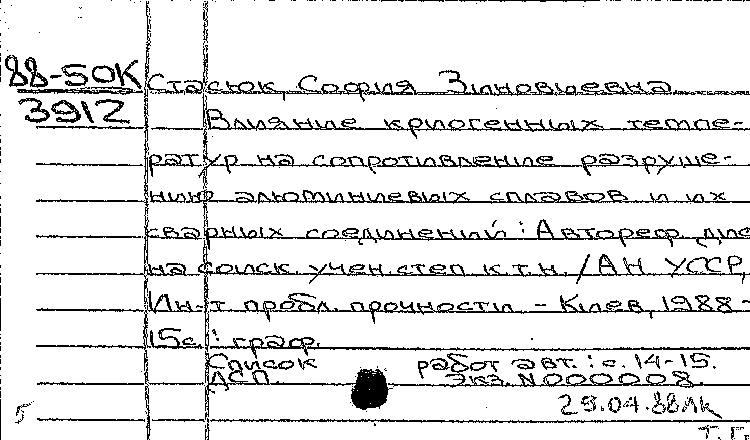 88-50К Стасюк, София Зиновиевна
3912 Влияние криогенных темпе-
ратур на сопротивление разруше-
нию алюминиевых сплавов и их
сварных соединений : Автореф. дис
на соиск. учен. степ к.т.н. / АН УССР,
Ин-т пробл. прочности - Киев, 1988 -
15с. : граф.
Список работ авт. : с. 14-15.
ДСП. Экз. N 000008.
29.04.88лк
5
Т. П.